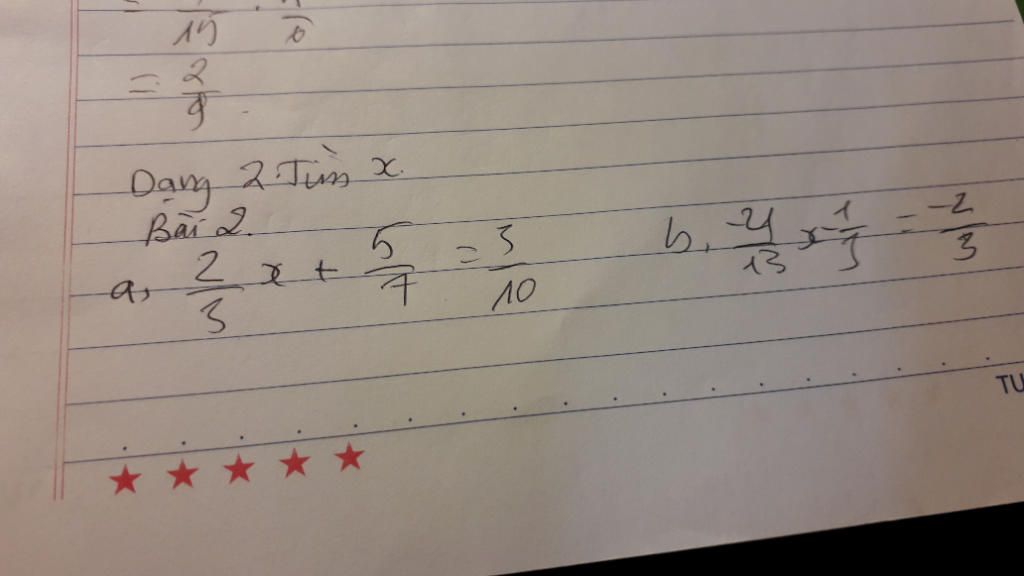 = 2/9
Dạng 2. Tìm x.
Bài 2.
a, 2/3 x + 5/7 = 3/10 b, -21/13 x - 1/3 = -2/3
TU